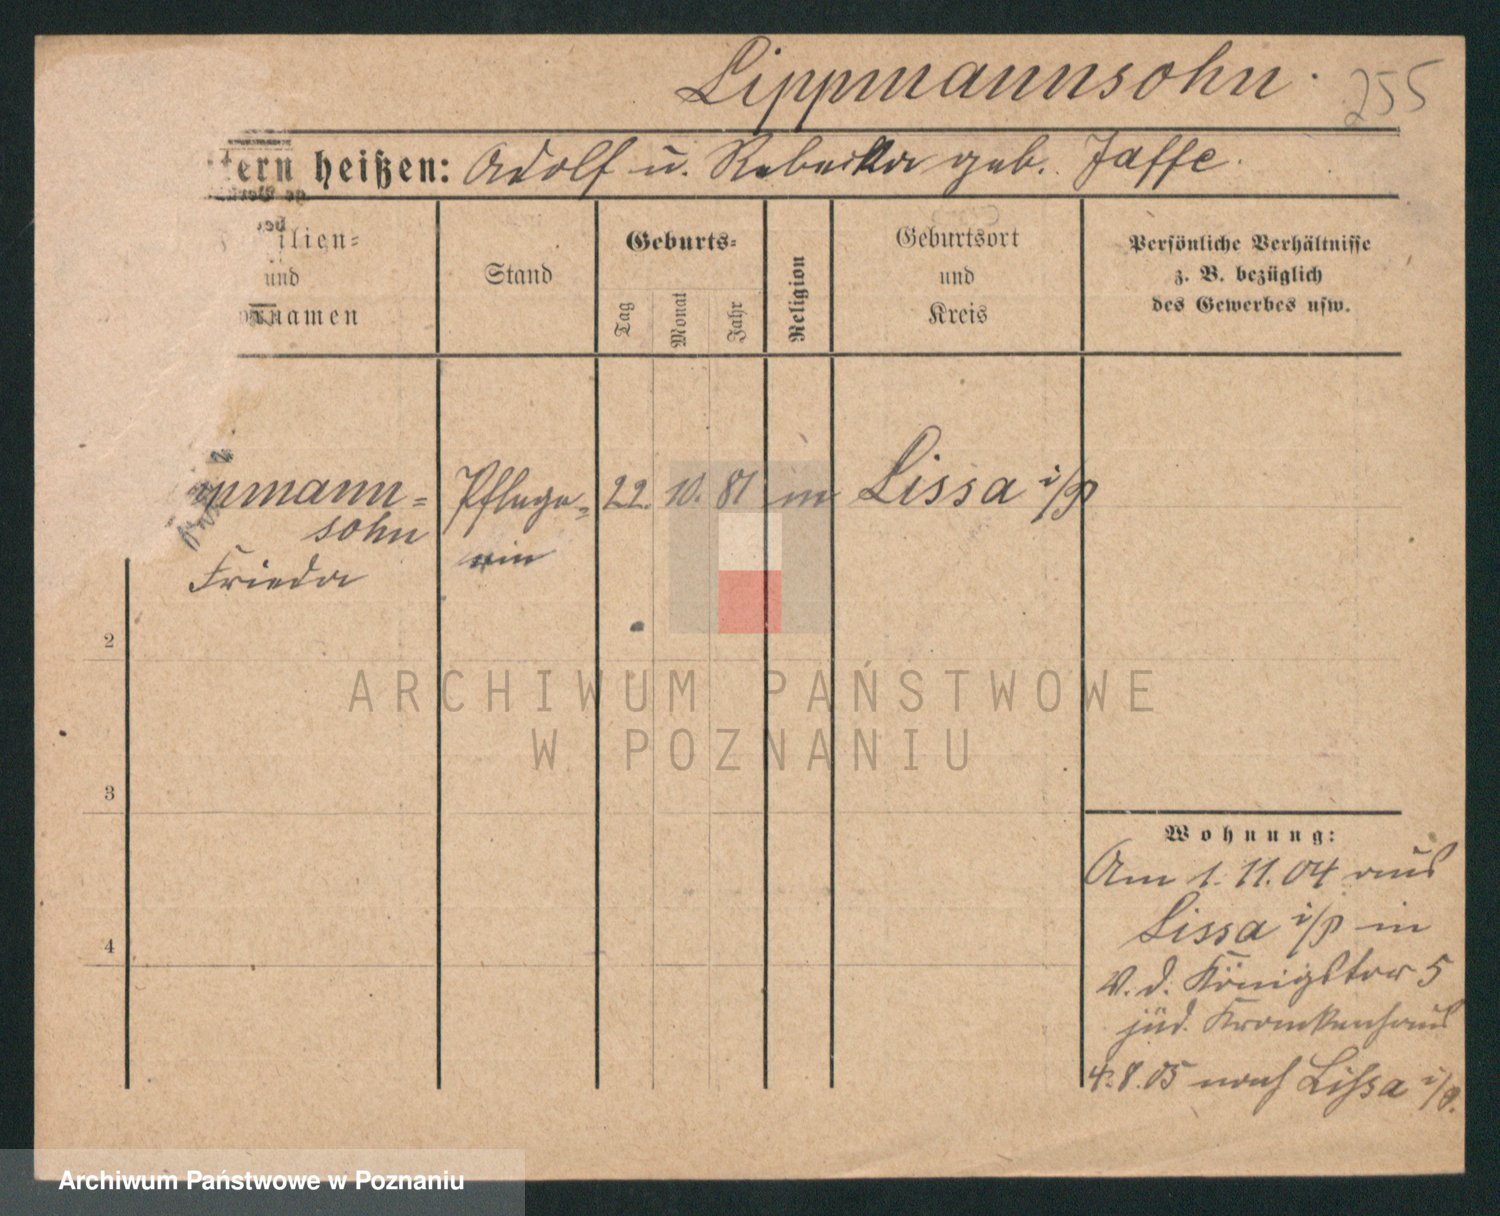 Lippmannsohn.
255
tern heißen: Adolf u. Rebekka geb. Jaffe.
ilien=
und
namen
Stand
Geburts=
Tag
Monat
Jahr
Religion
Geburtsort
und
Kreis
Persönliche Verhältnisse
z. B. bezüglich
des Gewerbes usw.
pmann=
sohn
Frieda
Pflege=
rin
22. 10. 81
m
Lissa i/P
2
3
4
Wohnung:
Am 1. 11. 04 aus
Lissa i/P in
V. d. Königstor 5
jüd. Krankenhaus
4. 8. 05 nach Lissa i/P.
ARCHIWUM PAŃSTWOWE
W POZNANIU
Archiwum Państwowe w Poznaniu